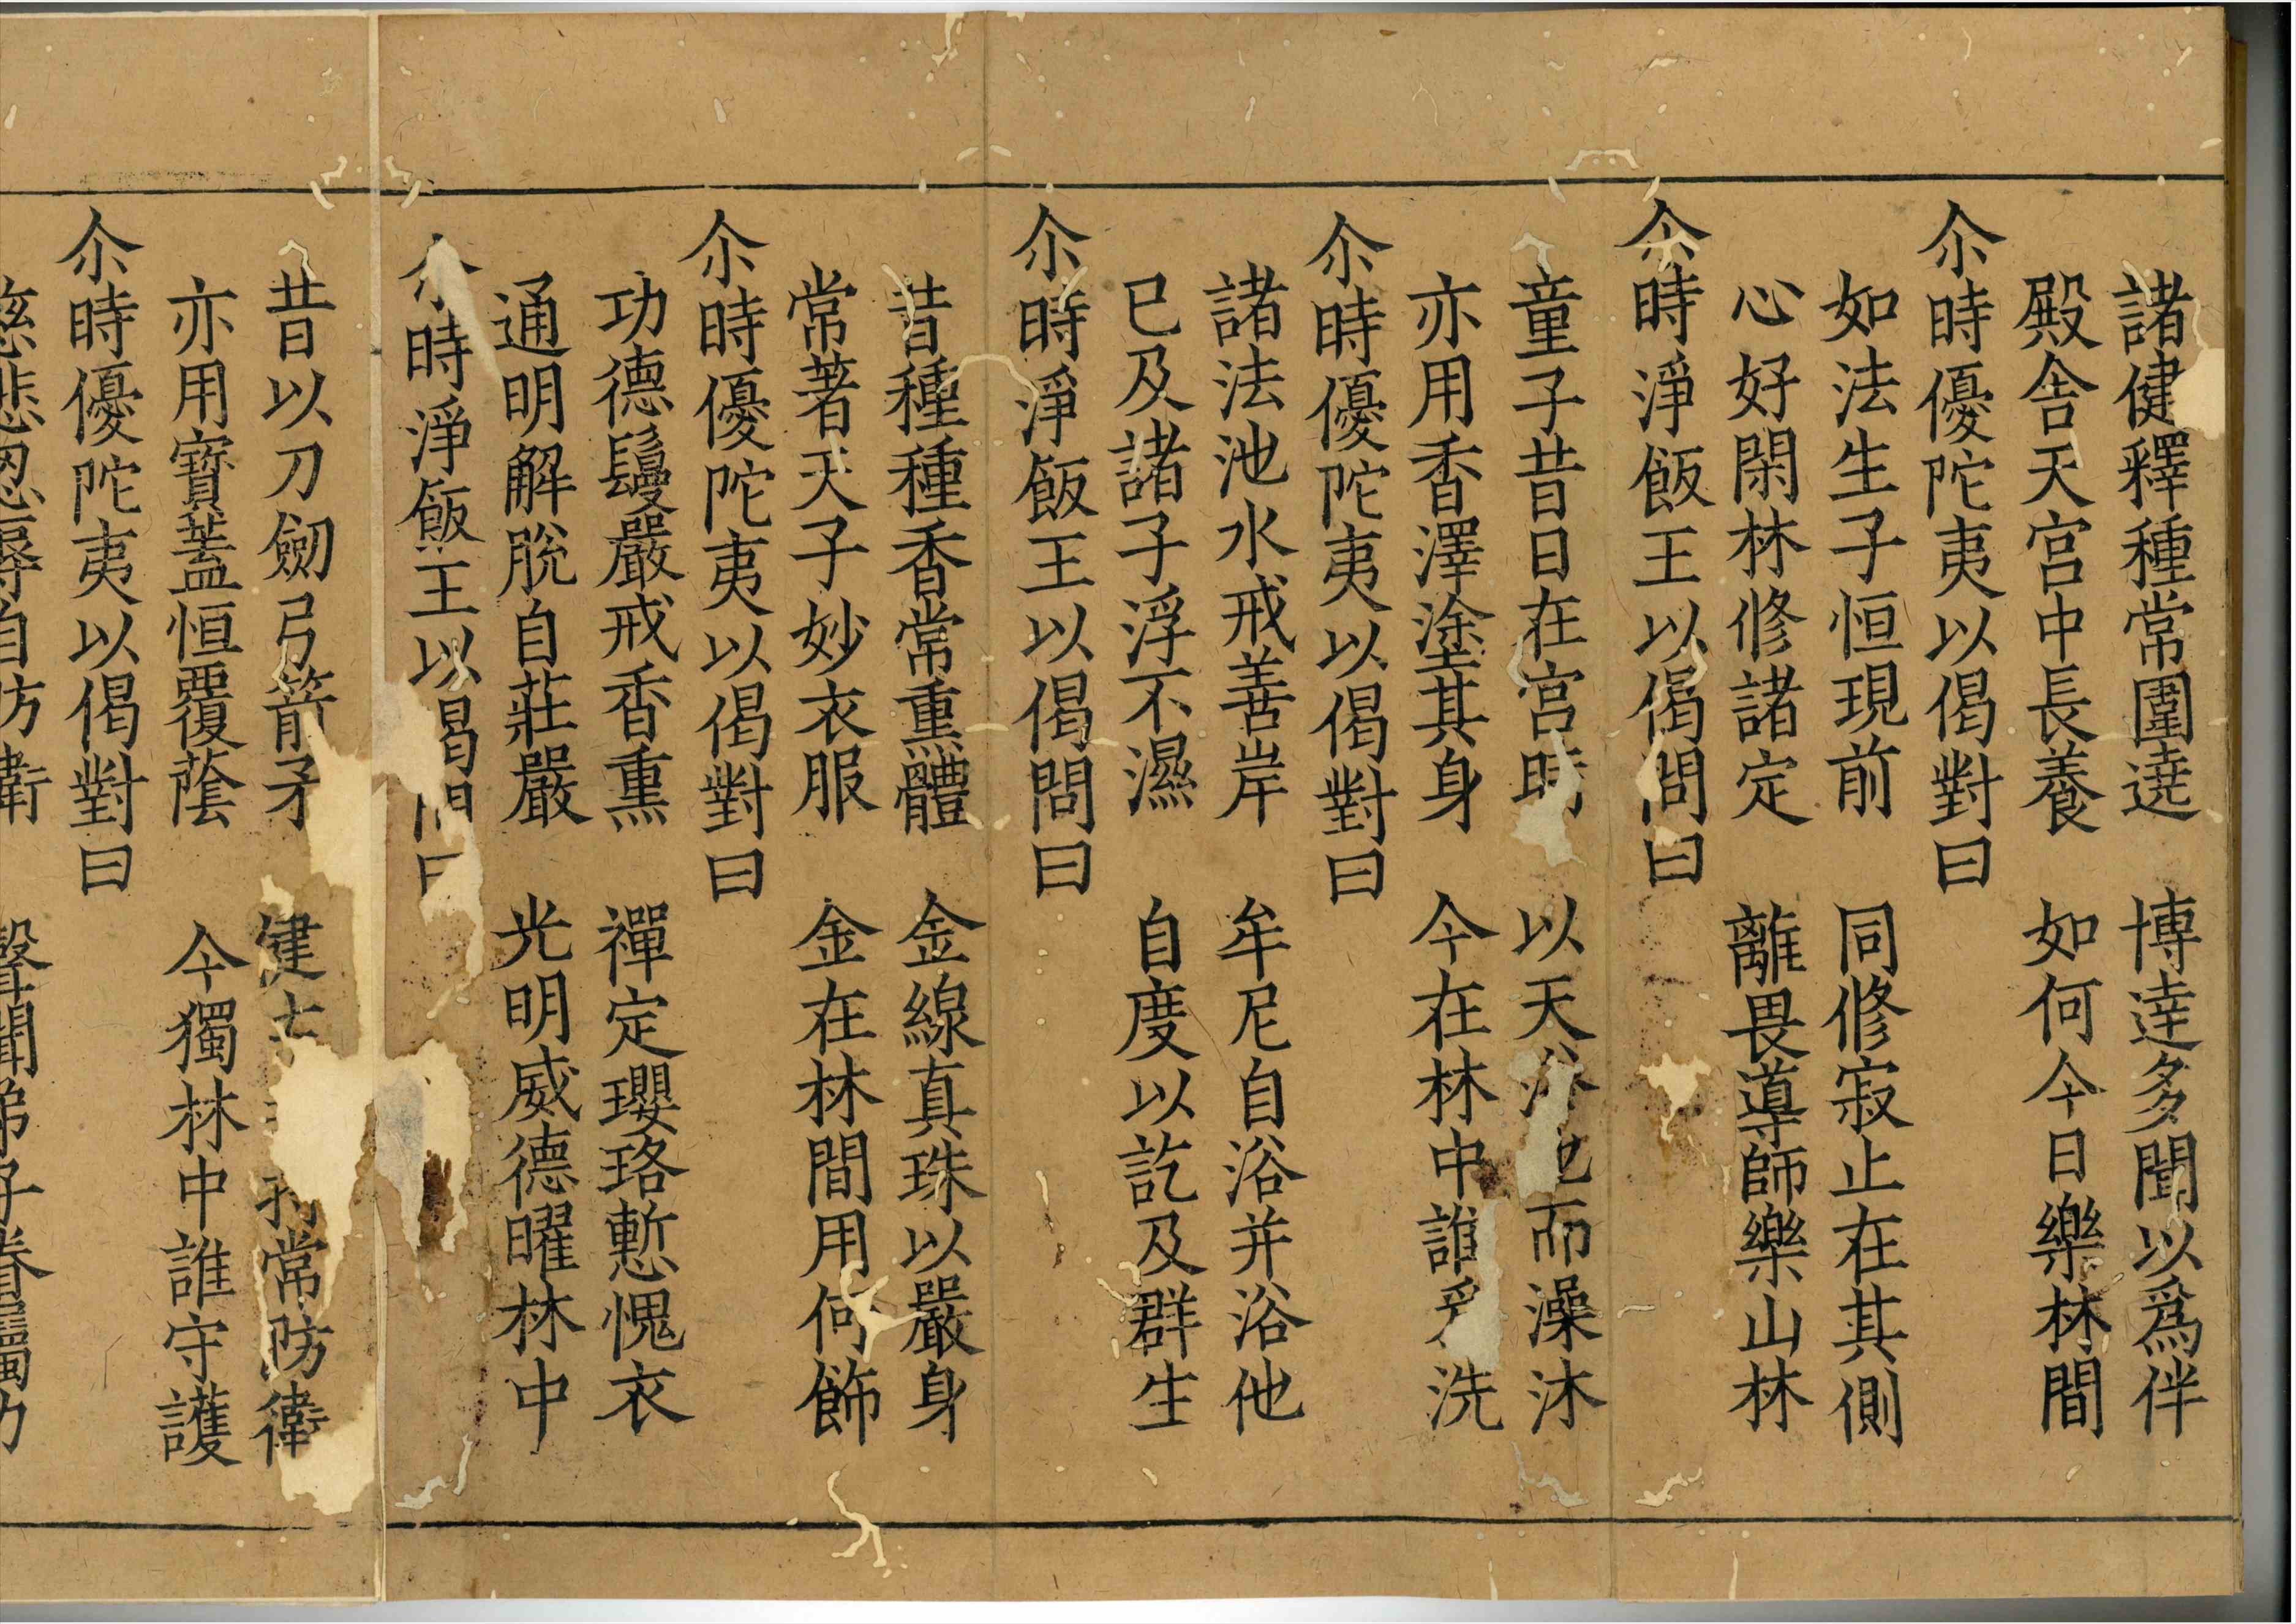 諸健釋種常圍遶　博達多聞以爲伴
殿舍天宮中長養　如何今日樂林間
尒時優陀夷以偈對曰
如法生子恒現前　同修寂止在其側
心好閑林修諸定　離畏導師樂山林
尒時淨飯王以偈問曰
童子昔日在宮時　以天浴池而澡沐
亦用香澤塗其身　今在林中誰爲洗
尒時優陀夷以偈對曰
諸法池水戒善岸　牟尼自浴并浴他
已及諸子浮不濕　自度以訖及群生
尒時淨飯王以偈問曰
昔種種香常熏體　金線真珠以嚴身
常著天子妙衣服　金在林間用何飾
尒時優陀夷以偈對曰
功德鬘嚴戒香熏　禪定瓔珞慙愧衣
通明解脫自莊嚴　光明威德曜林中
尒時淨飯王以偈問曰
昔以刀劒弓箭矛　健常防衛
亦用寶蓋恒覆蔭　今獨林中誰守護
尒時優陀夷以偈對曰
慈悲忍辱自防衛　聲聞弟子眷屬力